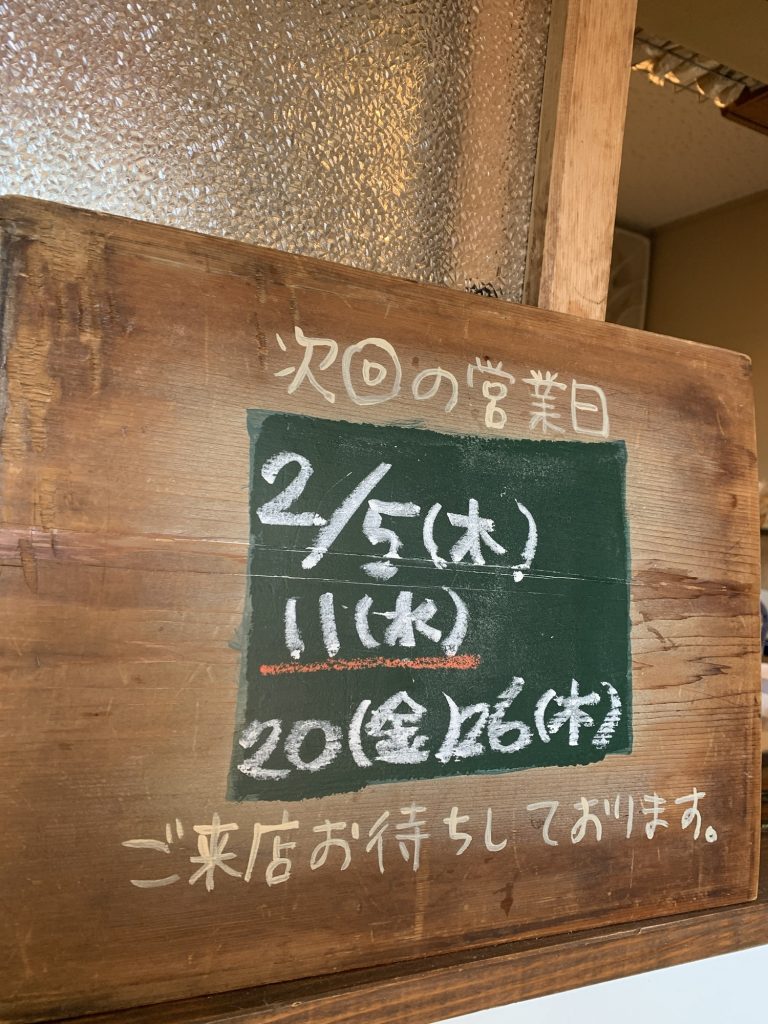 次回の営業日
2/5(木)
11(水)
20(金)26(木)
ご来店お待ちしております。